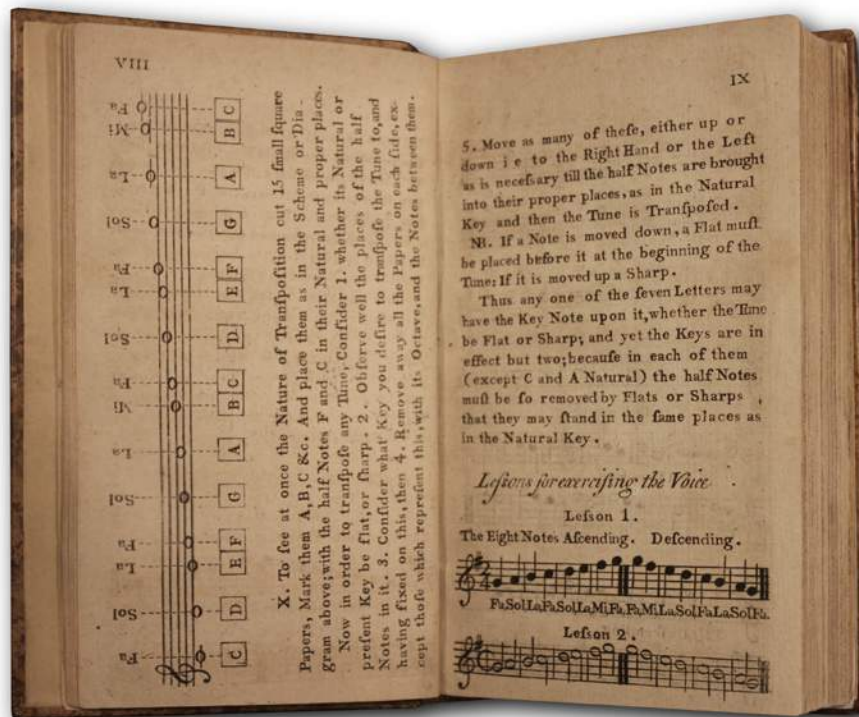 VIII
Fa Sol La Fa Sol La Mi Fa Sol La Fa Sol La Mi Fa
C D E F G A B C D E F G A B C
X. To ſee at once the Nature of Tranſpoſition cut 15 ſmall ſquare
Papers, Mark them A,B,C &c. And place them as in the Scheme or Dia-
gram above; with the half Notes F and C in their Natural and proper places.
Now in order to tranſpoſe any Tune, Conſider 1. whether its Natural or
preſent Key be flat, or ſharp. 2. Obſerve well the places of the half
Notes in it. 3. Conſider what Key you deſire to tranſpoſe the Tune to, and
having fixed on this, then 4. Remove away all the Papers on each ſide, ex-
cept thoſe which repreſent this, with its Octave, and the Notes between them.
IX
5. Move as many of theſe, either up or
down i e to the Right Hand or the Left
as is neceſsary till the half Notes are brought
into their proper places, as in the Natural
Key and then the Tune is Tranſpoſed.
NB. If a Note is moved down, a Flat muſt
be placed before it at the beginning of the
Tune: If it is moved up a Sharp.
Thus any one of the ſeven Letters may
have the Key Note upon it, whether the Tune
be Flat or Sharp; and yet the Keys are in
effect but two; becauſe in each of them
(except C and A Natural) the half Notes
muſt be ſo removed by Flats or Sharps,
that they may ſtand in the ſame places as
in the Natural Key.
Leſsons for exerciſing the Voice
Leſson 1.
The Eight Notes Aſcending. Deſcending.
2
4
Fa,Sol,La,Fa,Sol,La,Mi,Fa,Fa,Mi,La,Sol,Fa,La,Sol,Fa.
Leſson 2.